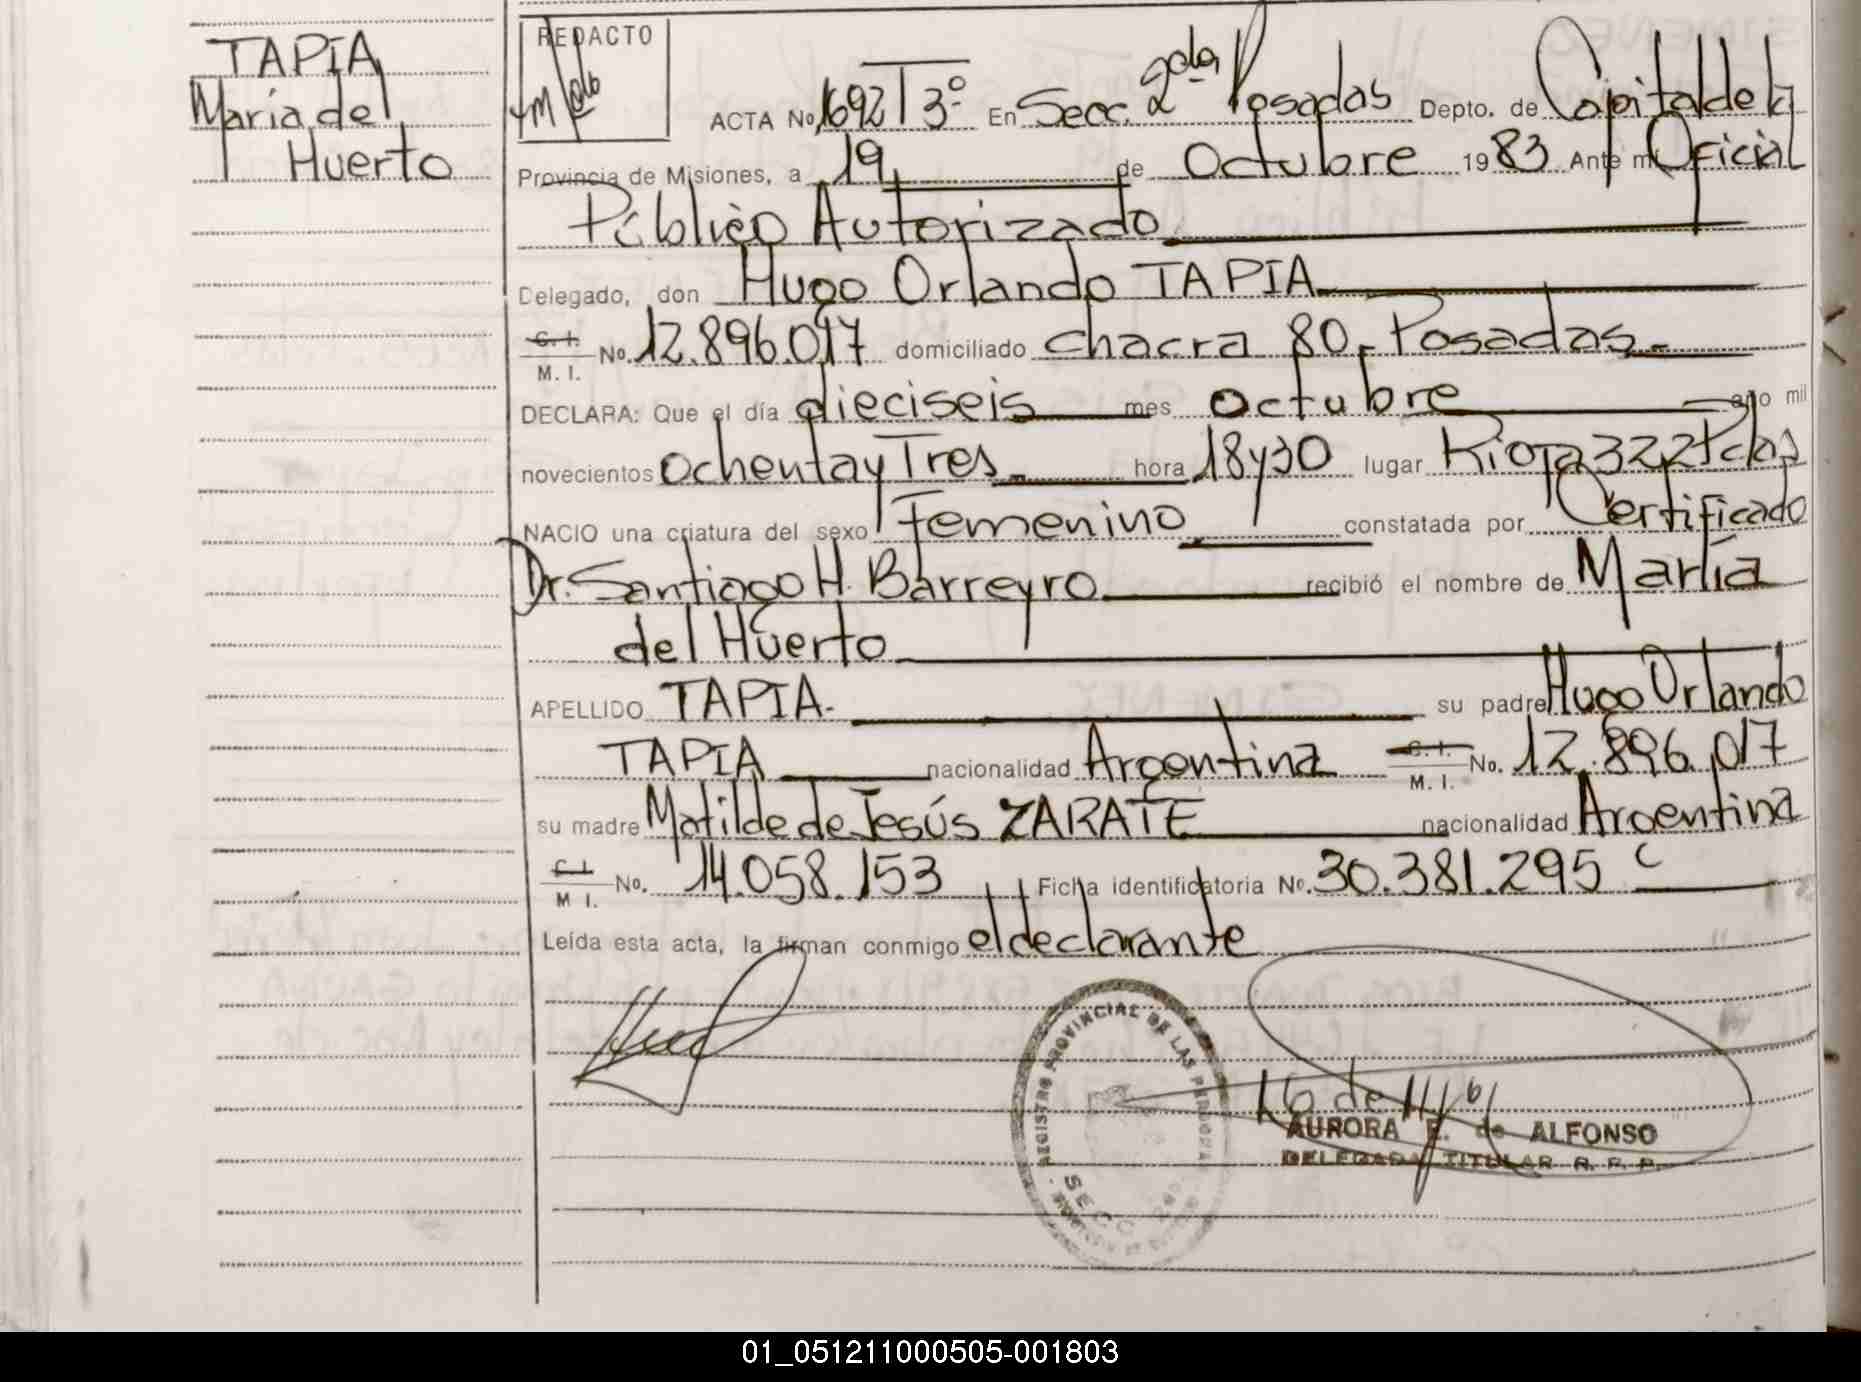 TAPIA
María del
Huerto
REDACTO
ACTA No. 1692 T 3º En Secc. 2da Posadas Depto. de Capital de la
Provincia de Misiones, a 19 de Octubre 1983 Ante mí Oficial
Público Autorizado
Delegado, don Hugo Orlando TAPIA
C. I.
M. I.
No. 12.896.017 domiciliado chacra 80 - Posadas.-
DECLARA: Que el día dieciseis mes octubre año mil
novecientos ochenta y Tres hora 18y30 lugar Rioja 322 Pdas
NACIO una criatura del sexo Femenino constatada por Certificado
Dr. Santiago H. Barreyro recibió el nombre de María
del Huerto
APELLIDO TAPIA.- su padre Hugo Orlando
TAPIA nacionalidad Argentina C. I.
M. I.
No. 12.896.017
su madre Matilde de Jesús ZARATE nacionalidad Argentina
C. I.
M. I.
No. 14.058.153 Ficha identificatoria No. 30.381.295 C
Leída esta acta, la firman conmigo el declarante
REGISTRO PROVINCIAL DE LAS PERSONAS
SECC. 2da
16 de
AURORA E. de ALFONSO
DELEGADA TITULAR R. P. P.
01_051211000505-001803